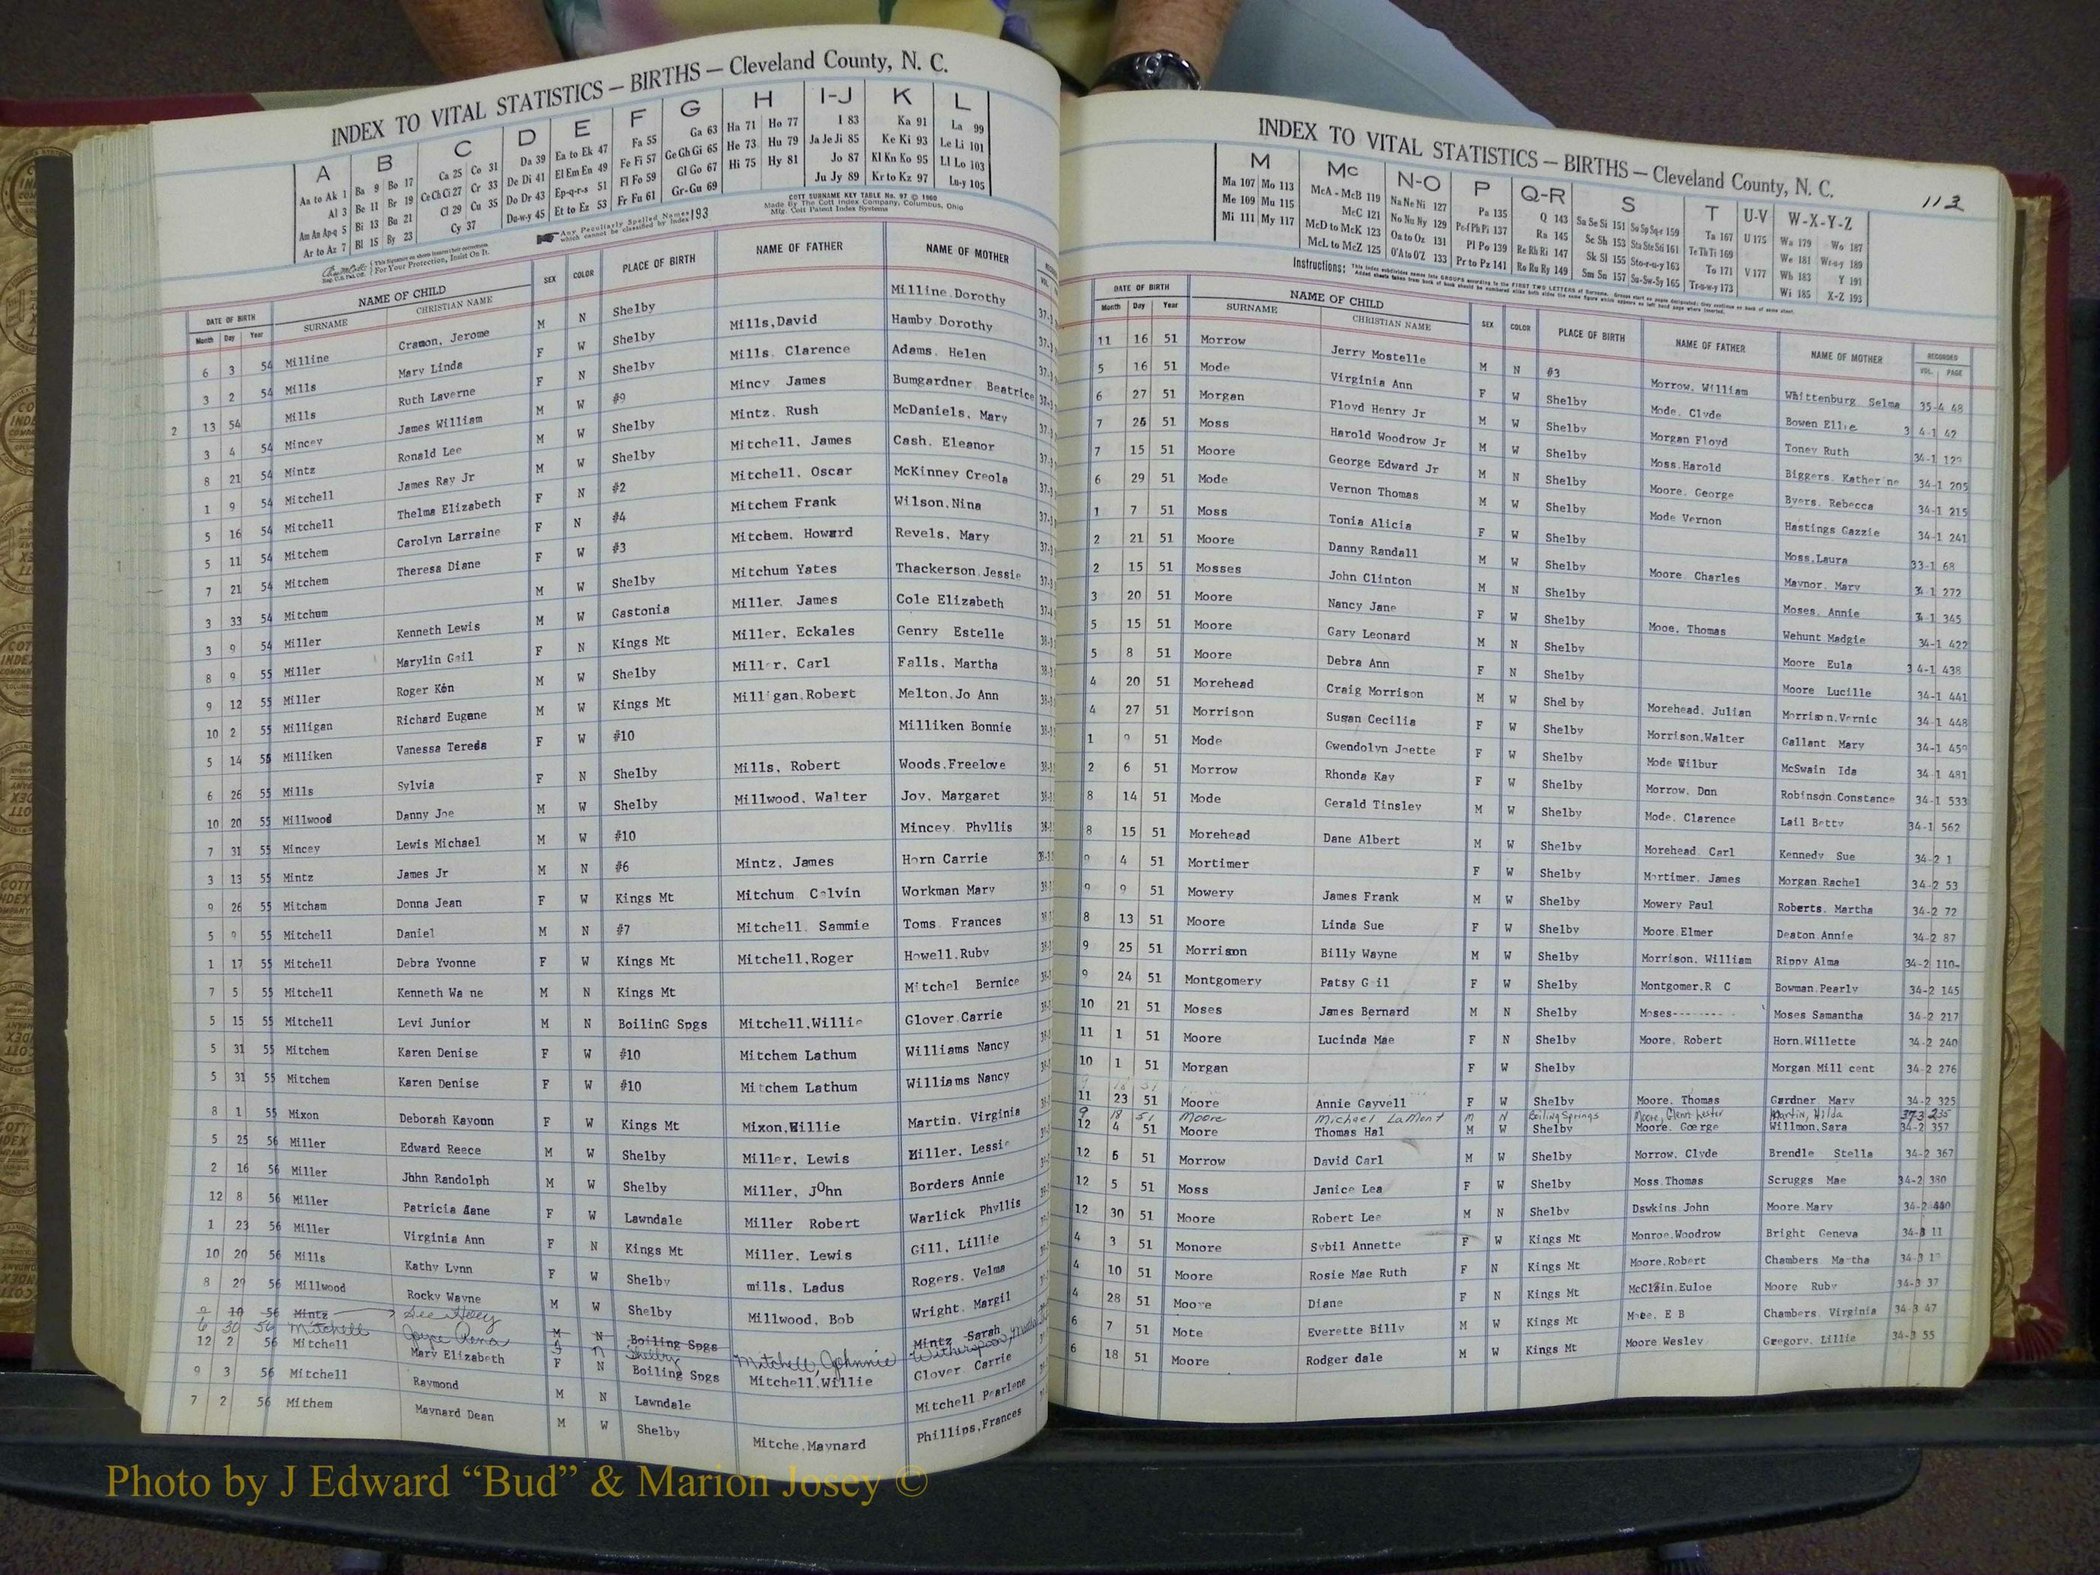 INDEX TO VITAL STATISTICS — BIRTHS — Cleveland County, N. C.
A B C D E F G H I-J K L
Aa to Ak 1 Ba 9 Bo 17 Ca 25 Co 31 Da 39 Ea to Ek 47 Fa 55 Ga 63 Ha 71 Ho 77 I 83 Ka 91 La 99
Al 3 Be 11 Br 19 Ce Ch Ci 27 Cr 33 De Di 41 El Em En 49 Fe Fi 57 Ge Gh Gi 65 He 73 Hu 79 Ja Je Ji 85 Ke Ki 93 Le Li 101
Am An Ap-q 5 Bi 13 Bu 21 Cl 29 Cu 35 Do Dr 43 Ep-q-r-s 51 Fl Fo 59 Gl Go 67 Hi 75 Hy 81 Jo 87 Kl Kn Ko 95 Ll Lo 103
Ar to Az 7 Bl 15 By 23 Cy 37 Du-w-y 45 Et to Ez 53 Fr Fu 61 Gr-Gu 69 Ju Jy 89 Kr to Kz 97 Lu-y 105
COTT SURNAME KEY TABLE No. 97 © 1960
Made By The Cott Index Company, Columbus, Ohio
Mfg. Cott Patent Index Systems
Any Peculiarly Spelled Names which cannot be classified by Index 193
For Your Protection, Insist On It.
DATE OF BIRTH NAME OF CHILD SEX COLOR PLACE OF BIRTH NAME OF FATHER NAME OF MOTHER
Month Day Year SURNAME CHRISTIAN NAME
6 3 54 Milline Cramon, Jerome M N Shelby Milline Dorothy
3 2 54 Mills Mary Linda F W Shelby Mills,David Hamby Dorothy
2 13 54 Mills Ruth Laverne F N Shelby Mills. Clarence Adams. Helen
3 4 54 Mincey James William M W #9 Mincy James Bumgardner Beatrice
8 21 54 Mintz Ronald Lee M W Shelby Mintz. Rush McDaniels, Mary
1 9 54 Mitchell James Ray Jr M W Shelby Mitchell, James Cash. Eleanor
5 16 54 Mitchell Thelma Elizabeth F N #2 Mitchell. Oscar McKinney Creola
5 11 54 Mitchem Carolyn Larraine F N #4 Mitchem Frank Wilson,Nina
7 21 54 Mitchem Theresa Diane F W #3 Mitchem. Howard Revels, Mary
3 33 54 Mitchum M W Shelby Mitchum Yates Thackerson,Jessie
3 9 54 Miller Kenneth Lewis M W Gastonia Miller. James Cole Elizabeth
8 9 55 Miller Marylin Gail F N Kings Mt Miller, Eckales Genry Estelle
9 12 55 Miller Roger Ken M W Shelby Miller, Carl Falls, Martha
10 2 55 Milligan Richard Eugene M W Kings Mt Milligan,Robert Melton,Jo Ann
5 14 55 Milliken Vanessa Tereda F W #10 Milliken Bonnie
6 26 55 Mills Sylvia F N Shelby Mills, Robert Woods,Freelove
10 20 55 Millwood Danny Joe M W Shelby Millwood, Walter Joy, Margaret
7 31 55 Mincey Lewis Michael M W #10 Mincey Phyllis
3 13 55 Mintz James Jr M N #6 Mintz, James Horn Carrie
9 26 55 Mitcham Donna Jean F W Kings Mt Mitchum Calvin Workman Mary
5 9 55 Mitchell Daniel M N #7 Mitchell. Sammie Toms Frances
1 17 55 Mitchell Debra Yvonne F W Kings Mt Mitchell,Roger Howell,Ruby
7 5 55 Mitchell Kenneth Wa ne M N Kings Mt Mitchel Bernice
5 15 55 Mitchell Levi Junior M N BoilinG Spgs Mitchell,Willie Glover Carrie
5 31 55 Mitchem Karen Denise F W #10 Mitchem Lathum Williams Nancy
5 31 55 Mitchem Karen Denise F W #10 Mitchem Lathum Williams Nancy
8 1 55 Mixon Deborah Kayonn F W Kings Mt Mixon,Willie Martin. Virginia
5 25 56 Miller Edward Reece M W Shelby Miller, Lewis Miller, Lessie
2 16 56 Miller John Randolph M W Shelby Miller, JOhn Borders Annie
12 8 56 Miller Patricia Aane F W Lawndale Miller Robert Warlick Phyllis
1 23 56 Miller Virginia Ann F N Kings Mt Miller, Lewis Gill, Lillie
10 20 56 Mills Kathy Lynn F W Shelby mills, Ladus Rogers. Velma
8 29 56 Millwood Rocky Wayne M W Shelby Millwood, Bob Wright, Margil
10 56 Mintz See Hoey M N Boiling Spgs Mintz Sarah
6 30 56 Mitchell Joyce Rena F N Shelby Mitchell, Johnnie Witherspoon,
12 2 56 Mitchell Mary Elizabeth F N Boiling Spgs Mitchell,Willie Glover Carrie
9 3 56 Mitchell Raymond M N Lawndale Mitchell Pearlene
7 2 56 Mithem Maynard Dean M W Shelby Mitche,Maynard Phillips,Frances
INDEX TO VITAL STATISTICS — BIRTHS — Cleveland County, N. C.
113
M Mc N-O P Q-R S T U-V W-X-Y-Z
Ma 107 Mo 113 McA - McB 119 Na Ne Ni 127 Pa 135 Q 143 Sa Se Si 151 So Sp Sq-r 159 Ta 167 U 175 Wa 179 Wo 187
Me 109 Mu 115 McC 121 No Nu Ny 129 Pe-f Ph Pi 137 Ra 145 Sc Sh 153 Sta Ste Sti 161 Te Th Ti 169 We 181 Wr-u-y 189
Mi 111 My 117 McD to McK 123 Oa to Oz 131 Pl Po 139 Re Rh Ri 147 Sk Sl 155 Sto-r-u-y 163 To 171 V 177 Wh 183 Y 191
McL to McZ 125 O'A to O'Z 133 Pr to Pz 141 Ro Ru Ry 149 Sm Sn 157 Su-Sw-Sy 165 Tr-u-w-y 173 Wi 185 X-Z 193
Instructions:
DATE OF BIRTH NAME OF CHILD SEX COLOR PLACE OF BIRTH NAME OF FATHER NAME OF MOTHER RECORDED
Month Day Year SURNAME CHRISTIAN NAME VOL. PAGE
11 16 51 Morrow Jerry Mostelle M N #3 Morrow, William Whittenburg Selma 35-4 48
5 16 51 Mode Virginia Ann F W Shelby Mode, Clyde Bowen Ellie 3 4-1 42
6 27 51 Morgan Floyd Henry Jr M W Shelby Morgan Floyd Toney Ruth 34-1 129
7 26 51 Moss Harold Woodrow Jr M W Shelby Moss,Harold Biggers. Katherine 34-1 205
7 15 51 Moore George Edward Jr M N Shelby Moore. George Byers. Rebecca 34-1 215
6 29 51 Mode Vernon Thomas M W Shelby Mode Vernon Hastings Gazzie 34-1 241
1 7 51 Moss Tonia Alicia F W Shelby Moss,Laura 33-1 68
2 21 51 Moore Danny Randall M W Shelby Moore Charles Maynor. Mary 34-1 272
2 15 51 Mosses John Clinton M N Shelby Moses. Annie 34-1 345
3 20 51 Moore Nancy Jane F W Shelby Mooe, Thomas Wehunt Madgie 34-1 422
5 15 51 Moore Gary Leonard M N Shelby Moore Eula 3 4-1 438
5 8 51 Moore Debra Ann F N Shelby Moore Lucille 34-1 441
4 20 51 Morehead Craig Morrison M W Shel by Morehead, Julian Morrison,Vernic 34-1 448
4 27 51 Morrison Susan Cecilia F W Shelby Morrison,Walter Gallant Mary 34-1 459
1 9 51 Mode Gwendolyn Joette F W Shelby Mode Wilbur McSwain Ida 34-1 481
2 6 51 Morrow Rhonda Kay F W Shelby Morrow, Don Robinson Constance 34-1 533
8 14 51 Mode Gerald Tinsley M W Shelby Mode. Clarence Lail Betty 34-1 562
8 15 51 Morehead Dane Albert M W Shelby Morehead Carl Kennedy Sue 34-2 1
9 4 51 Mortimer F W Shelby Mortimer. James Morgan Rachel 34-2 53
9 9 51 Mowery James Frank M W Shelby Mowery Paul Roberts. Martha 34-2 72
8 13 51 Moore Linda Sue F W Shelby Moore Elmer Deaton Annie 34-2 87
9 25 51 Morrison Billy Wayne M W Shelby Morrison, William Rippy Alma 34-2 110-
9 24 51 Montgomery Patsy G il F W Shelby Montgomer,R C Bowman,Pearly 34-2 145
10 21 51 Moses James Bernard M N Shelby Moses-------- Moses Samantha 34-2 217
11 1 51 Moore Lucinda Mae F N Shelby Moore, Robert Horn,Willette 34-2 240
10 1 51 Morgan F W Shelby Morgan Mill cent 34-2 276
11 23 51 Moore Annie Gayvell F W Shelby Moore. Thomas Gardner Mary 34-2 325
9 18 51 Moore Michael LaMont M N Boiling Springs Moore, Glenn Lester Martin, Hilda 37-3 235
12 4 51 Moore Thomas Hal M W Shelby Moore. Goerge Willmon,Sara 34-2 357
12 6 51 Morrow David Carl M W Shelby Morrow, Clyde Brendle Stella 34-2 367
12 5 51 Moss Janice Lea F W Shelby Moss Thomas Scruggs Mae 34-2 380
12 30 51 Moore Robert Lee M N Shelby Dswkins John Moore,Mary 34-2 440
4 3 51 Monore Sybil Annette F W Kings Mt Monroe,Woodrow Bright Geneva 34-3 11
4 10 51 Moore Rosie Mae Ruth F N Kings Mt Moore,Robert Chambers Martha 34-3
4 28 51 Moore Diane F N Kings Mt McClain,Euloe Moore Ruby 34-3 37
6 7 51 Mote Everette Billy M W Kings Mt E B Chambers, Virginia 34-3 47
6 18 51 Moore Rodger dale M W Kings Mt Moore Wesley Gregory, Lillie 34-3 55
Photo by J Edward “Bud” & Marion Josey ©